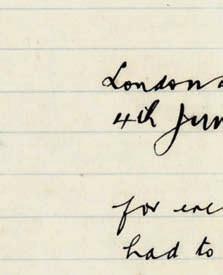 London
4th Jun
for
had to